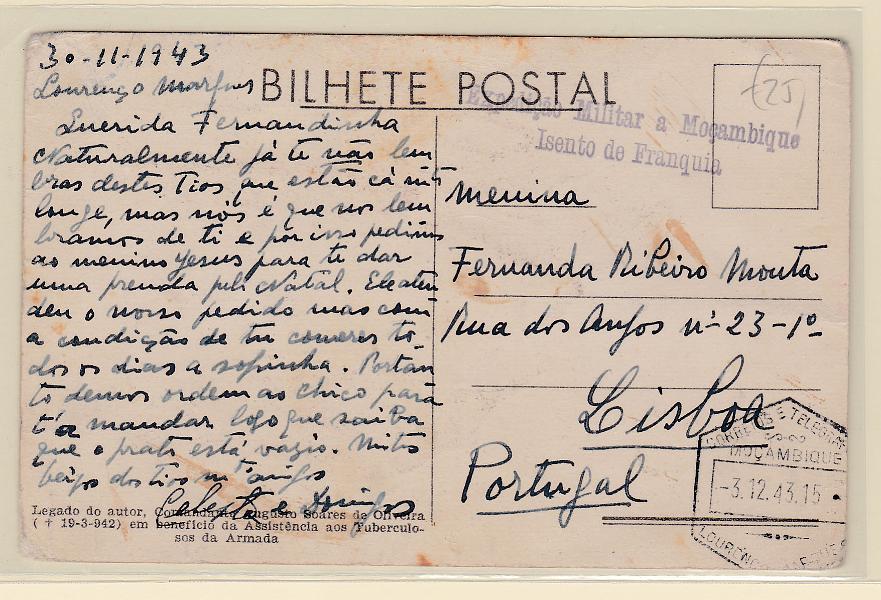 30-11-1943
Lourenço Marques
BILHETE POSTAL
Querida Fernandinha
Naturalmente já te não lem
bras destes Tios que estão cá
longe, mas nós é que nos lem
bramos de ti e por isso pedimos
ao menino Jesus para te dar
uma prenda pelo Natal. Ele aten
deu o nosso pedido mas com
a condição de tu comeres to_
dos os dias a sopinha. Portan
to demos ordem ao Chico para
t'a mandar logo que saiba
que o prato está vazio. Muitos
beijos dos tios
e Domingos
Legado do autor, Comandante Augusto Soares de Oliveira
( † 19-3-942) em benefício da Assistência aos Tuberculo-
sos da Armada
(25)
Expedição Militar a Moçambique
Isento de Franquia
Menina
Fernanda Ribeiro Monta
Rua dos Anjos nº 23-1º
Lisboa
Portugal
CORREIOS E TELEGRAFOS
MOÇAMBIQUE
-3.12.43.15
LOURENÇO MARQUES